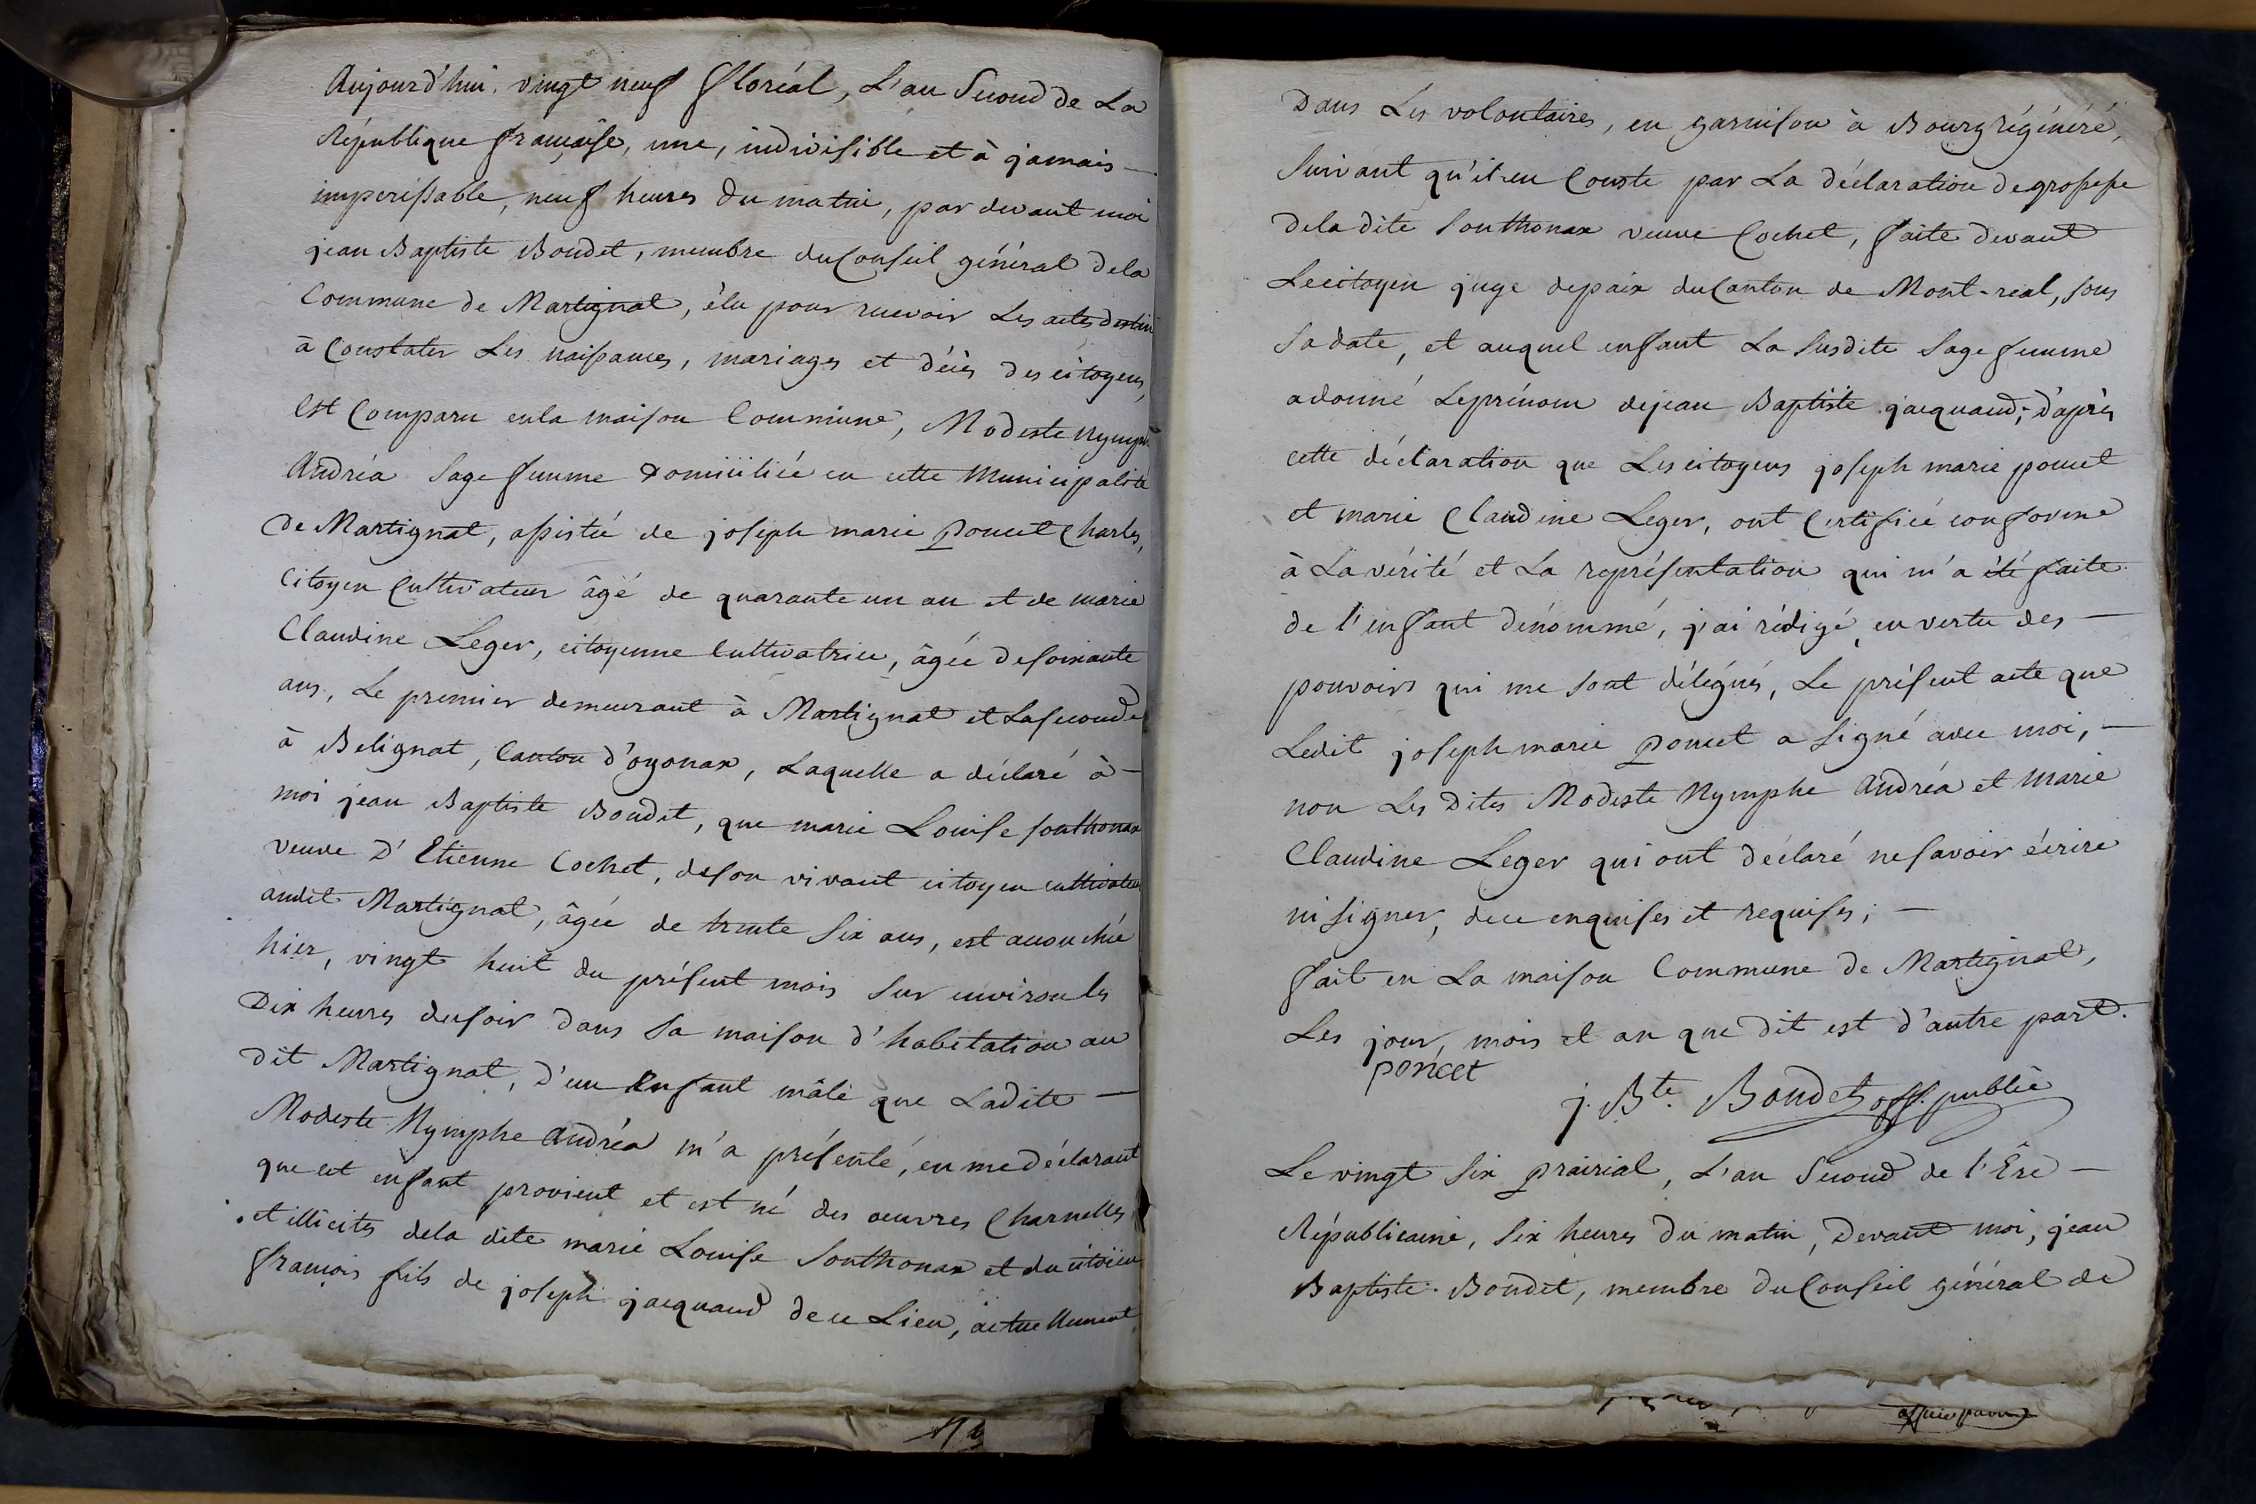 Aujourd'hui, vingt neuf floréal, L'an Second de La
République française, une, indivisible et à jamais —
imperissable, neuf heures du matin, par devant moi
jean Baptiste Boudet, membre du Conseil général dela
Commune de Martignat, élu pour recevoir Les actes destin
à Constater Les naissances, mariages et décès des citoyens,
Est Comparu enla maison Commune, Modeste Nymphe
Andréa Sage femme domiciliée en cette Municipalité
De Martignat, assistée de joseph marie Poncet Charles,
Citoyen Cultivateur âgé de quarante un an et de marie
Claudine Leger, citoyenne Cultivatrice, âgée desoixante
ans, Le premier demeurant à Martignat et Laseconde
à Belignat, Canton d'oyonax, Laquelle a déclaré à —
moi jean Baptiste Boudet, que marie Louise sonthonax
veuve D'Etienne Cochet, deson vivant citoyen cultivateur
audit Martignat, âgée de trente Six ans, est accouchée
hier, vingt huit du présent mois Sur environ les
Dix heures dusoir dans Sa maison d'habitation au
dit Martignat, d'un Enfant mâle que Ladite —
Modeste Nymphe Andréa m'a présenté, en me déclarant
que cet enfant provient et est né des oeuvres Charnelles
et illicites dela dite marie Louise Sonthonax et du citoïen
François fils de joseph jacquand de ce Lieu, actuellement
Dans Les volontaires, en garnison à Bourgrégénéré,
Suivant qu'il en Conste par La déclaration degrossesse
dela dite Sonthonax veuve Cochet, faite devant
Lecitoyen juge depaix du Canton de Mont-real, sous
Sa date, et auquel enfant La Susdite Sage femme
adonné Leprénom dejean Baptiste jacquand; D'après
cette déclaration que Les citoyens joseph marie poncet
et marie Claudine Leger, ont Certifiée conforme
à La vérité et La représentation qui m'a été faite
de l'enfant dénommé, j'ai rédigé, en vertu des —
pouvoirs qui me sont délégués, Le présent acte que
Ledit joseph marie Poncet a signé avec moi, —
non Les Dites Modeste Nymphe Andréa et Marie
Claudine Leger qui ont déclaré nesavoir écrire
ni signer, de ce enquises et requises; —
fait en La maison Commune de Martignat,
Les jour, mois et an que Dit est d'autre part.
poncet
j. Bte. Boudet off. public
Le vingt Six Prairial, L'an Second de l'Ere —
Républicaine, Six heures Du matin, Devant moi, jean
Baptiste Boudet, membre Du Conseil général de